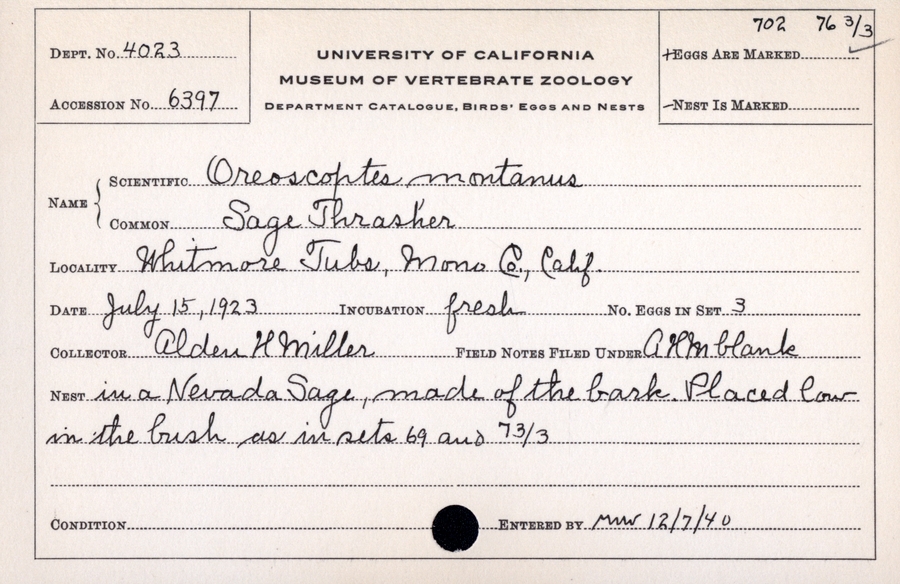 702 76 3/3
DEPT. No. 4023
UNIVERSITY OF CALIFORNIA
+EGGS ARE MARKED
MUSEUM OF VERTEBRATE ZOOLOGY
ACCESSION No. 6397
DEPARTMENT CATALOGUE, BIRDS' EGGS AND NESTS
-NEST IS MARKED
NAME
SCIENTIFIC Oreoscoptes montanus
COMMON Sage Thrasher
LOCALITY Whitmore Tubs, Mono Co., Calif.
DATE July 15, 1923 INCUBATION fresh No. EGGS IN SET 3
COLLECTOR Alden H Miller FIELD NOTES FILED UNDER AHM blank
NEST in a Nevada Sage, made of the bark. Placed low
in the bush as in sets 69 and 73/3
CONDITION ENTERED BY 12/7/40